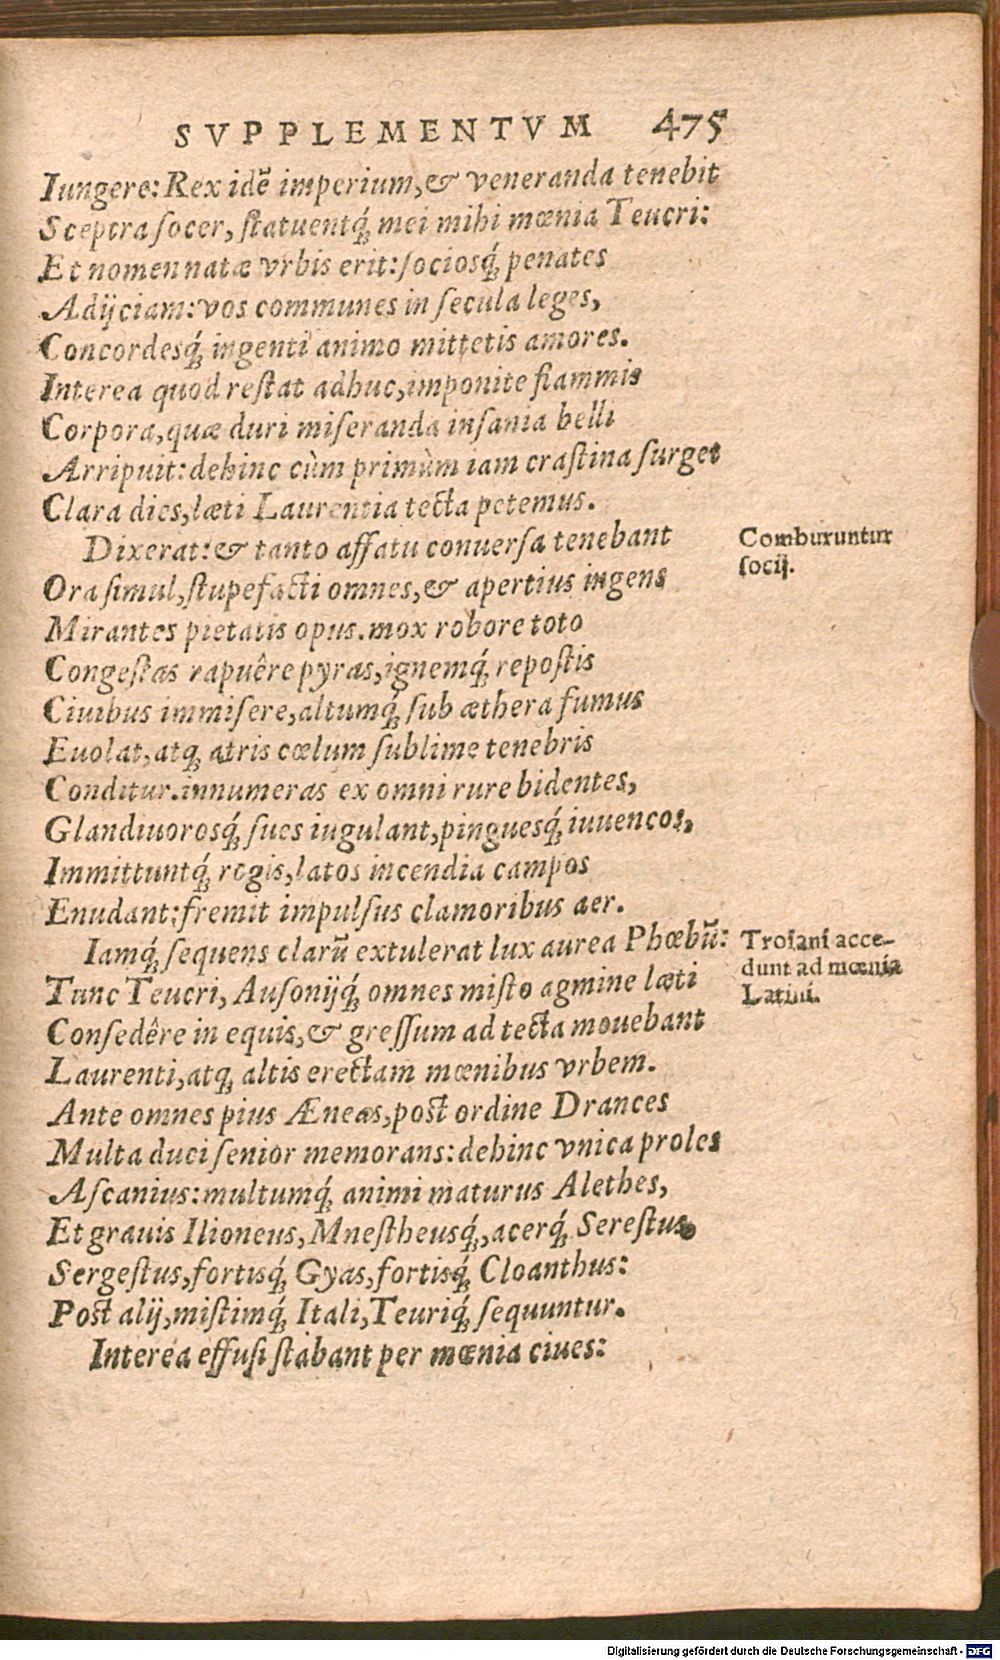 SVPPLEMENTVM 475
Iungere: Rex idẽ imperium, & veneranda tenebit
Sceptra ſocer, ſtatuentq́; mei mihi mœnia Teucri:
Et nomen natæ vrbis erit: ſociosq́; penates
Adijciam: vos communes in ſecula leges,
Concordesq́; ingenti animo mittetis amores.
Interea quod reſtat adhuc, imponite flammis
Corpora, quæ duri miſeranda inſania belli
Arripuit: dehinc cùm primùm iam craſtina ſurget
Clara dies, læti Laurentia tecta petemus.
Dixerat: & tanto affatu conuerſa tenebant
Ora ſimul, ſtupefacti omnes, & apertius ingens
Mirantes pietatis opus. mox robore toto
Congeſtas rapuêre pyras, ignemq́; repoſtis
Ciuibus immiſere, altumq́; ſub æthera fumus
Euolat, atq; atris cœlum ſublime tenebris
Conditur. innumeras ex omni rure bidentes,
Glandiuorosq́; ſues iugulant, pinguesq́; iuuencos,
Immittuntq́; rogis, latos incendia campos
Enudant: fremit impulſus clamoribus aer.
Iamq́; ſequens clarũ extulerat lux aurea Phœbũ:
Tunc Teucri, Auſonijq́; omnes miſto agmine læti
Conſedêre in equis, & greſſum ad tecta mouebant
Laurenti, atq; altis erectam mœnibus vrbem.
Ante omnes pius Æneas, poſt ordine Drances
Multa duci ſenior memorans: dehinc vnica proles
Aſcanius: multumq́; animi maturus Alethes,
Et grauis Ilioneus, Mneſtheusq́;, acerq́; Sereſtus
Sergeſtus, fortisq́; Gyas, fortisq́; Cloanthus:
Poſt alij, miſtimq́; Itali, Teuriq́; ſequuntur.
Interea effuſi ſtabant per mœnia ciues:
Comburuntur
ſocij.
Troiani acce-
dunt ad mœnia
Latini.
Digitalisierung gefördert durch die Deutsche Forschungsgemeinschaft - DFG